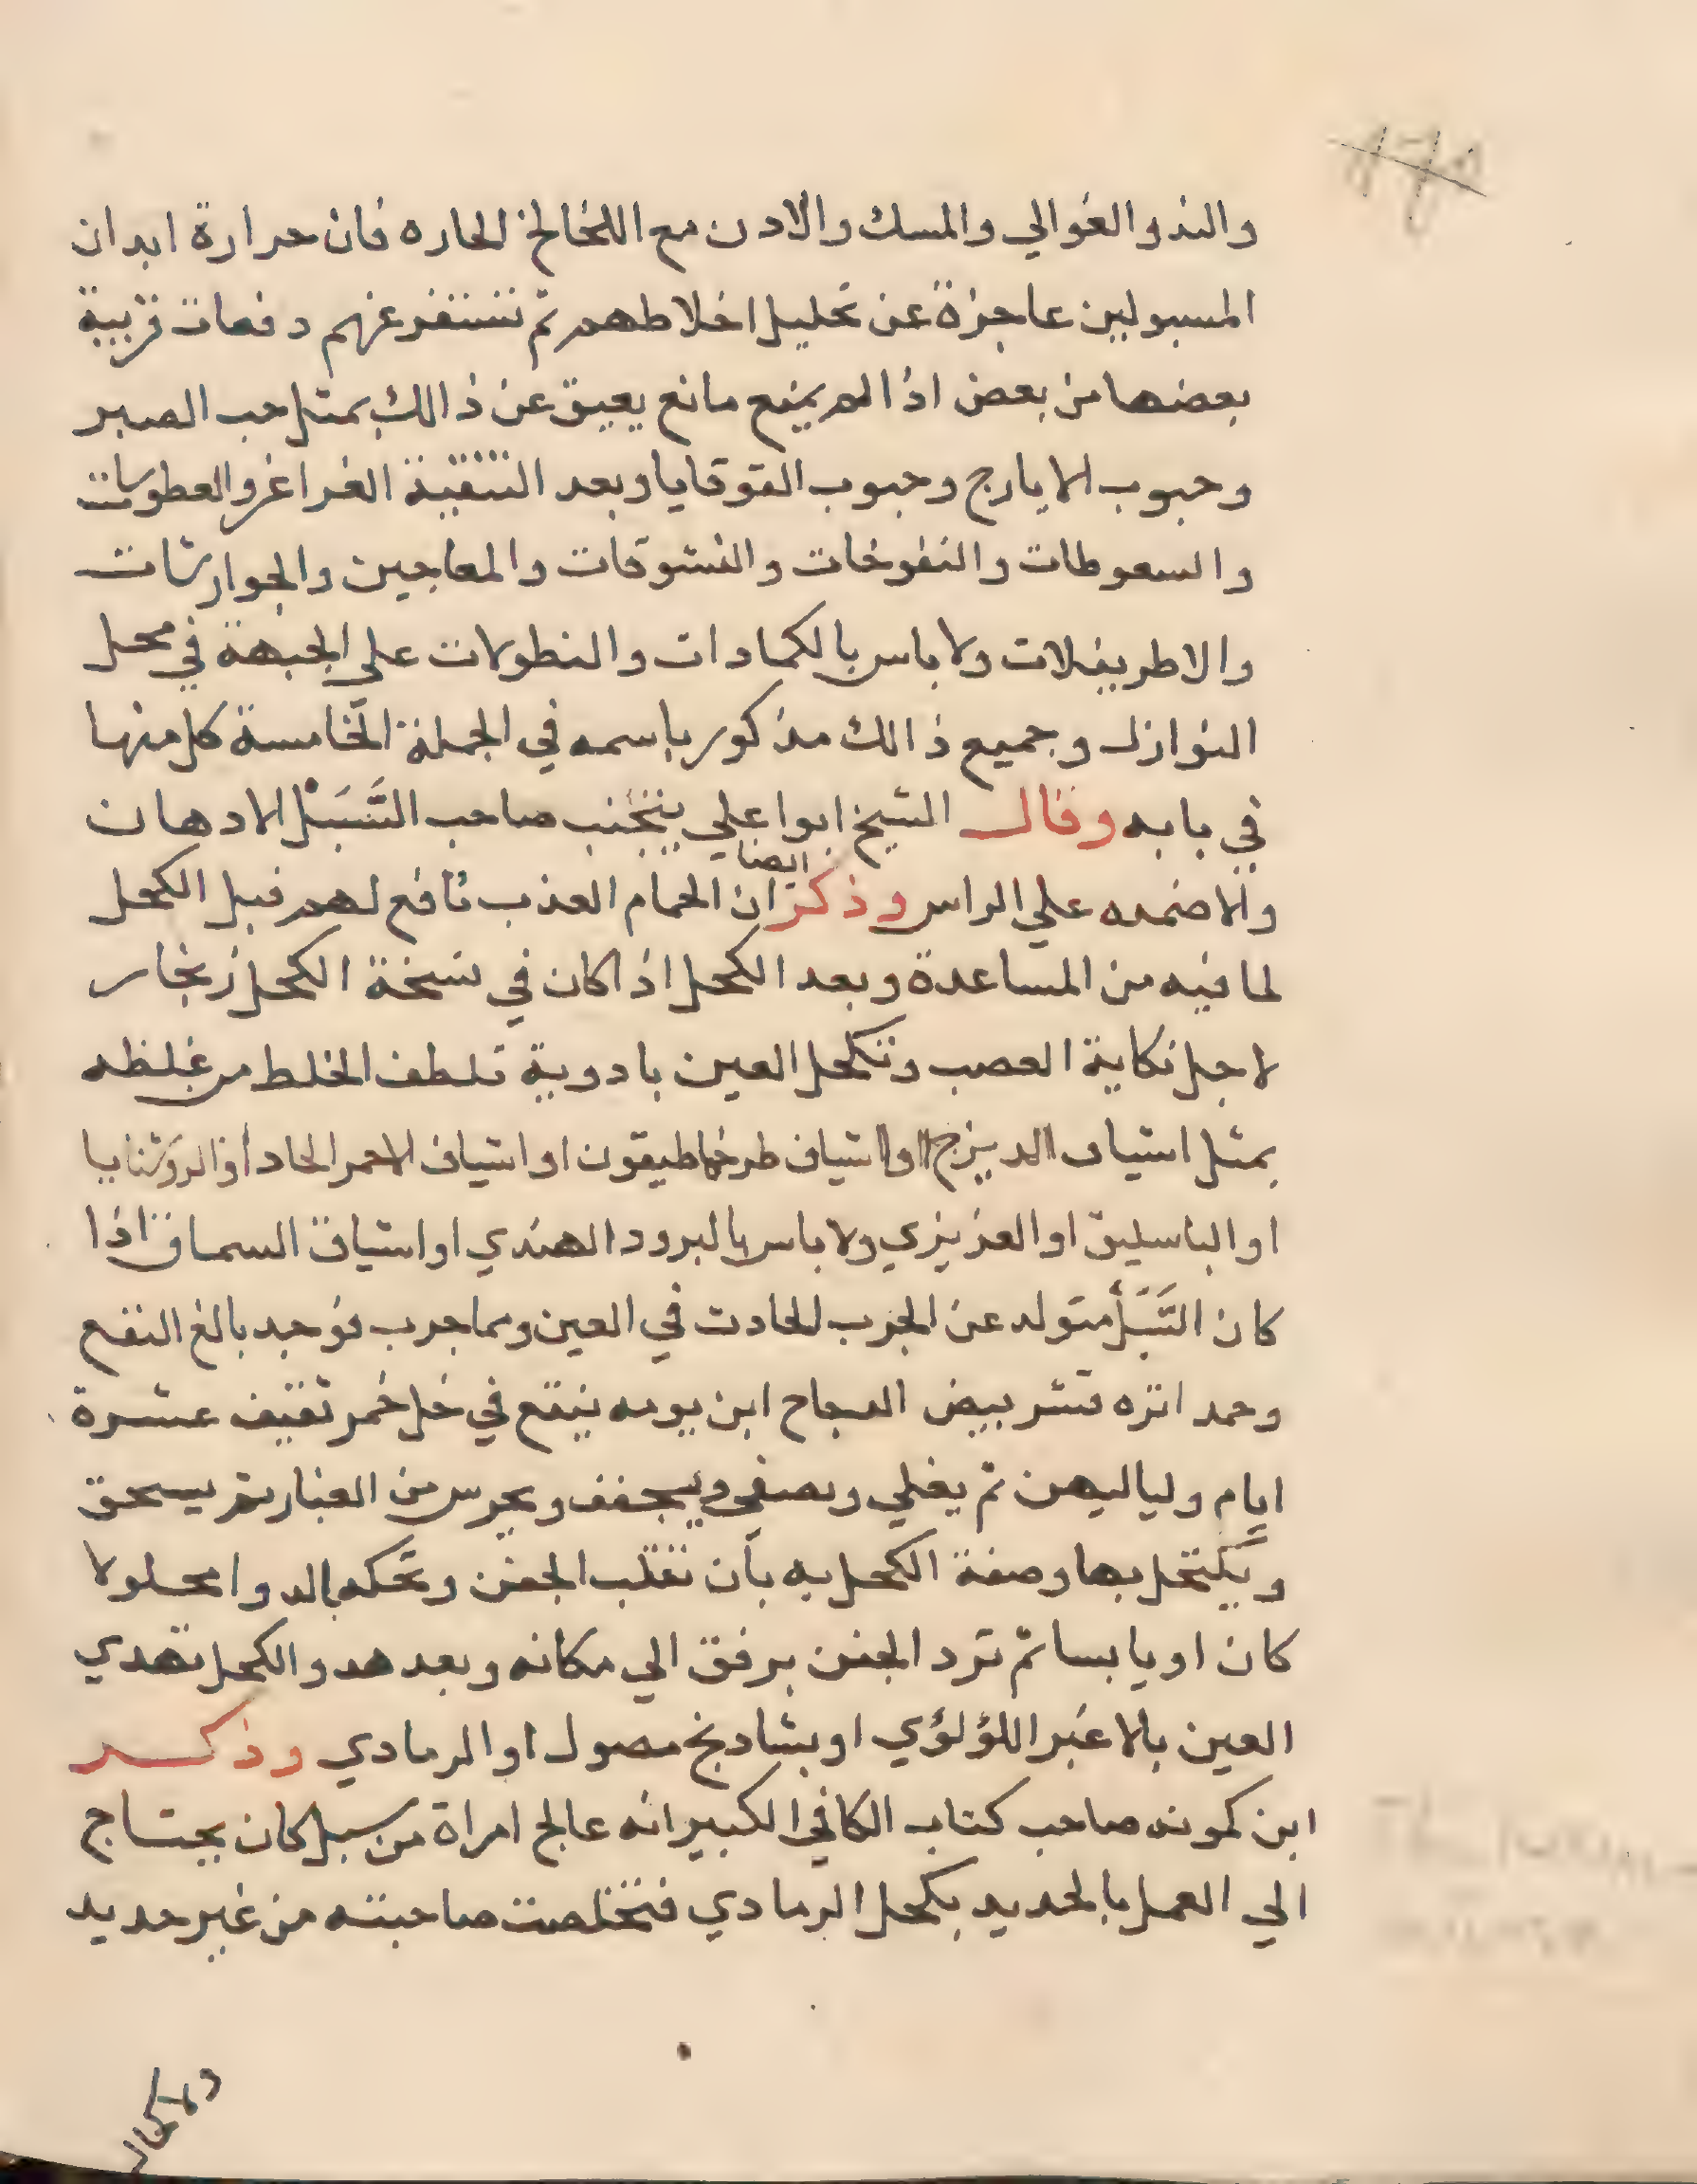 والند والغوالي والمسك والادن مع اللخالخ الحاره فان حرارة ابدان
المسبولين عاجزة عن تحليل اخلاطهم ثم تستفرغهم دفعات قريبة
بعضها من بعض اذا لم يمنع مانع يعيق عن ذالك بمثل حب الصبر
وحبوب الايارج وحبوب القوقايا وبعد التنقية الغراغر والعطوسات
والسعوطات والنفوخات والنشوقات والمعاجين والجوارشات
والاطريفلات ولا باس بالكمادات والنطولات علي الجبهة في محل
النوازل وجميع ذالك مذكور باسمه في الجملة الخامسة كل منها
في بابه وقال الشيخ ابوا علي يتجنب صاحب السَّبَلْ الادهان
والاضمده علي الراس وذكر ايضا ان الحمام العذب نافع لهم قبل الكحل
لما فيه من المساعدة وبعد الكحل اذا كان في نسخة الكحل زنجار
لاجل نكاية العصب وتكحل العين بادوية تلطف الخلط من غلظه
بمثل اشياف الديزج او اشياف طرخماطيقون او اشياف الاحمر الحاد او الروشنايا
او الباسليق او العزيزي ولا باس بالبرود الهندي او اشياف السماق اذا
كان السَّبَلْ متولد عن الجرب الحادث في العين ومما جرب فوجد بالغ النفع
وحمد اثره قشر بيض الدجاج ابن يومه ينقع في خل خمر ثقيف عشرة
ايام ولياليهن ثم يغلي ويصفي ويجفف ويحرس من الغبار ثم يسحق
ويكتحل بها وصفة الكحل به بأن تقلب الجفن وتحكه بالدوا محلولا
كان او يابسا ثم ترد الجفن برفق الي مكانه وبعد هدو الكحل تهدي
العين بالاغبر اللؤلؤي او بشادنج مصول او الرمادي وذكر
ابن كمونه صاحب كتاب الكافي الكبير انه عالج امراة من سبل كان يحتاج
الي العمل بالحديد بكحل الرمادي فتخلصت صاحبته من غير حديد